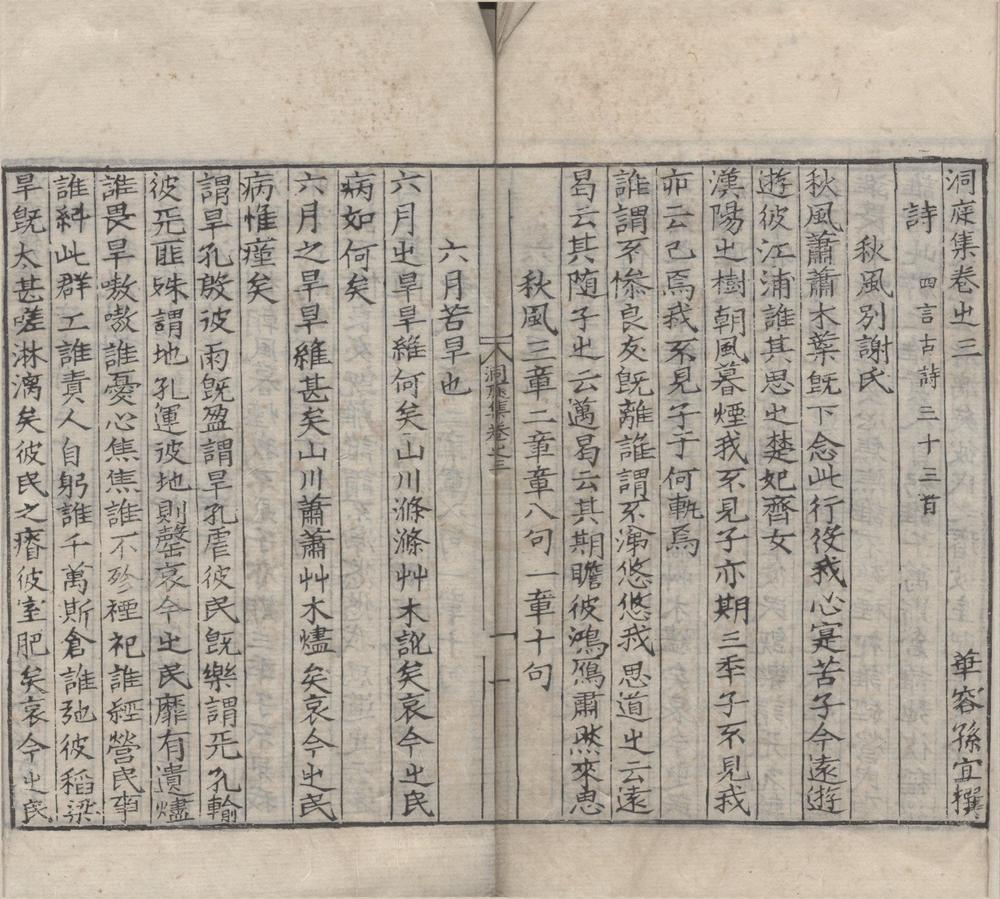 洞庭集卷㞢三　華容孫宜撰
詩　四言古詩三十三首
秋風別謝氏
秋風蕭蕭木葉旣下念此行役我心寔苦子今遠遊
遊彼江浦誰其思㞢楚妃齊女
漢陽㞢樹朝風暮煙我不見子亦期三秊子不見我
亦云已焉我不見子于何軌焉
誰謂不慘良友旣離誰謂不淪悠悠我思道㞢云遠
曷云其隨子㞢云邁曷云其期瞻彼鴻鴈肅然來思
秋風三章二章章八句一章十句
洞庭集卷之三　一
六月若旱也
六月㞢旱旱維何矣山川滌滌艸木訛矣哀今㞢民
病如何矣
六月之旱旱維甚矣山川蕭蕭艸木燼矣哀今㞢民
病惟瘽矣
謂旱孔殷彼雨旣盈謂旱孔虐彼民旣樂謂兂孔輸
彼兂匪姝謂地孔運彼地則罄哀今㞢民靡有遺燼
誰畏旱嗷嗷誰憂心焦焦誰不殄禋祀誰經營民事
誰糾此群工誰責人自躬誰千萬斯倉誰弛彼稻粱
旱旣太甚嗟淋漓矣彼民之瘠彼室肥矣哀今㞢民